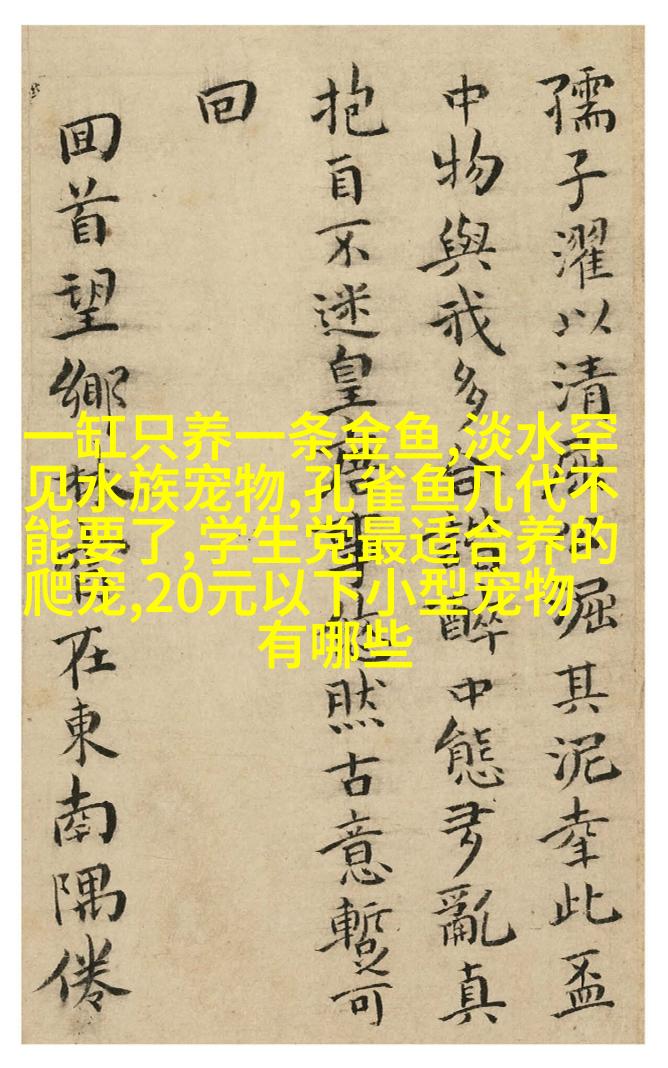 孺子濯以清掘其泥此盃
中物與我多醉中態多亂真
抱自不迷皇事然古意暫可
回
囬首望鄉林在東南隅倦
一缸只养一条金鱼,淡水罕
见水族宠物,孔雀鱼几代不
能要了,学生党最适合养的
爬宠,20元以下小型宠物
有哪些